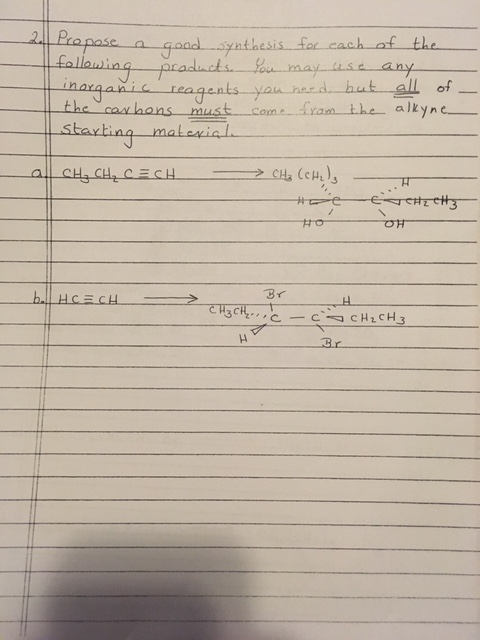 2. Propose a good synthesis for each of the
following products. You may use any
inorganic reagents you need, but all of
the carbons must come from the alkyne
starting material.
a. CH3 CH2 C≡CH → CH3 (CH2)3 H
H C — C CH2 CH3
HO OH
b. HC≡CH → Br H
CH3CH2 C — C CH2CH3
H Br